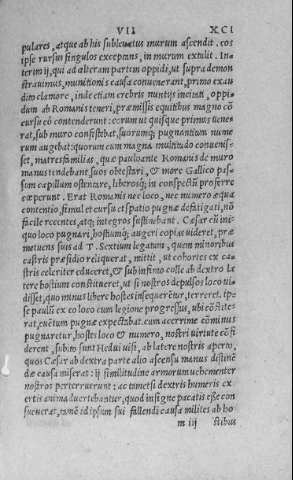 VII XCI
pulares, atque ab his subleuatus murum ascendit. eos
ipse rursus singulos exceptans, in murum extulit. In
terim ij, qui ad alteram partem oppidi, ut supra demon
strauimus, munitionis causa conuenerant, primo exau
dito clamore, inde etiam crebris nuntijs incitati, oppi-
dum ab Romanis teneri, præmissis equitibus magno cō
cursu eò contenderunt: eorum ut quisque primus uene
rat, sub muro consistebat, suorumq; pugnantium nume
rum augebat: quorum cum magna multitudo conuenis-
set, matresfamilias, quæ pauloante Romanis de muro
manus tendebant, suos obtestari, & more Gallico pas-
sum capillum ostentare, liberosq; in conspectū proferre
cœperunt. Erat Romanis nec loco, nec numero æqua
contentio, simul et cursu et spatio pugnæ defatigati, nō
facile recentes, atq; integros sustinebant. Cæsar cū ini-
quo loco pugnari, hostiumq; augeri copias uideret, præ
metuens suis ad T. Sextium legatum, quem minoribus
castris præsidio reliquerat, mittit, ut cohortes ex ca-
stris celeriter educeret, & sub infimo colle ab dextro la
tere hostium constitueret, ut si nostros depulsos loco ui-
disset, quo minus libere hostes insequerētur, terreret. ipse
se paulū ex eo loco cum legione progressus, ubi cōstite
rat, euētum pugnæ expectabat. cum acerrime cōminus
pugnaretur, hostes loco & numero, nostri uirtute cōfi
derent, subito sunt Hedui uisi, ab latere nostris aperto,
quos Cæsar ab dextra parte alio ascensu manus distinē
dæ causa miserat: ij similitudine armorum uehementer
nostros perterruerunt: ac tametsi dextris humeris ex
ertis animaduertebantur, quod insigne pacatis esse con
sueuerat, tamē id ipsum sui fallendi causa milites ab ho
m iij stibus